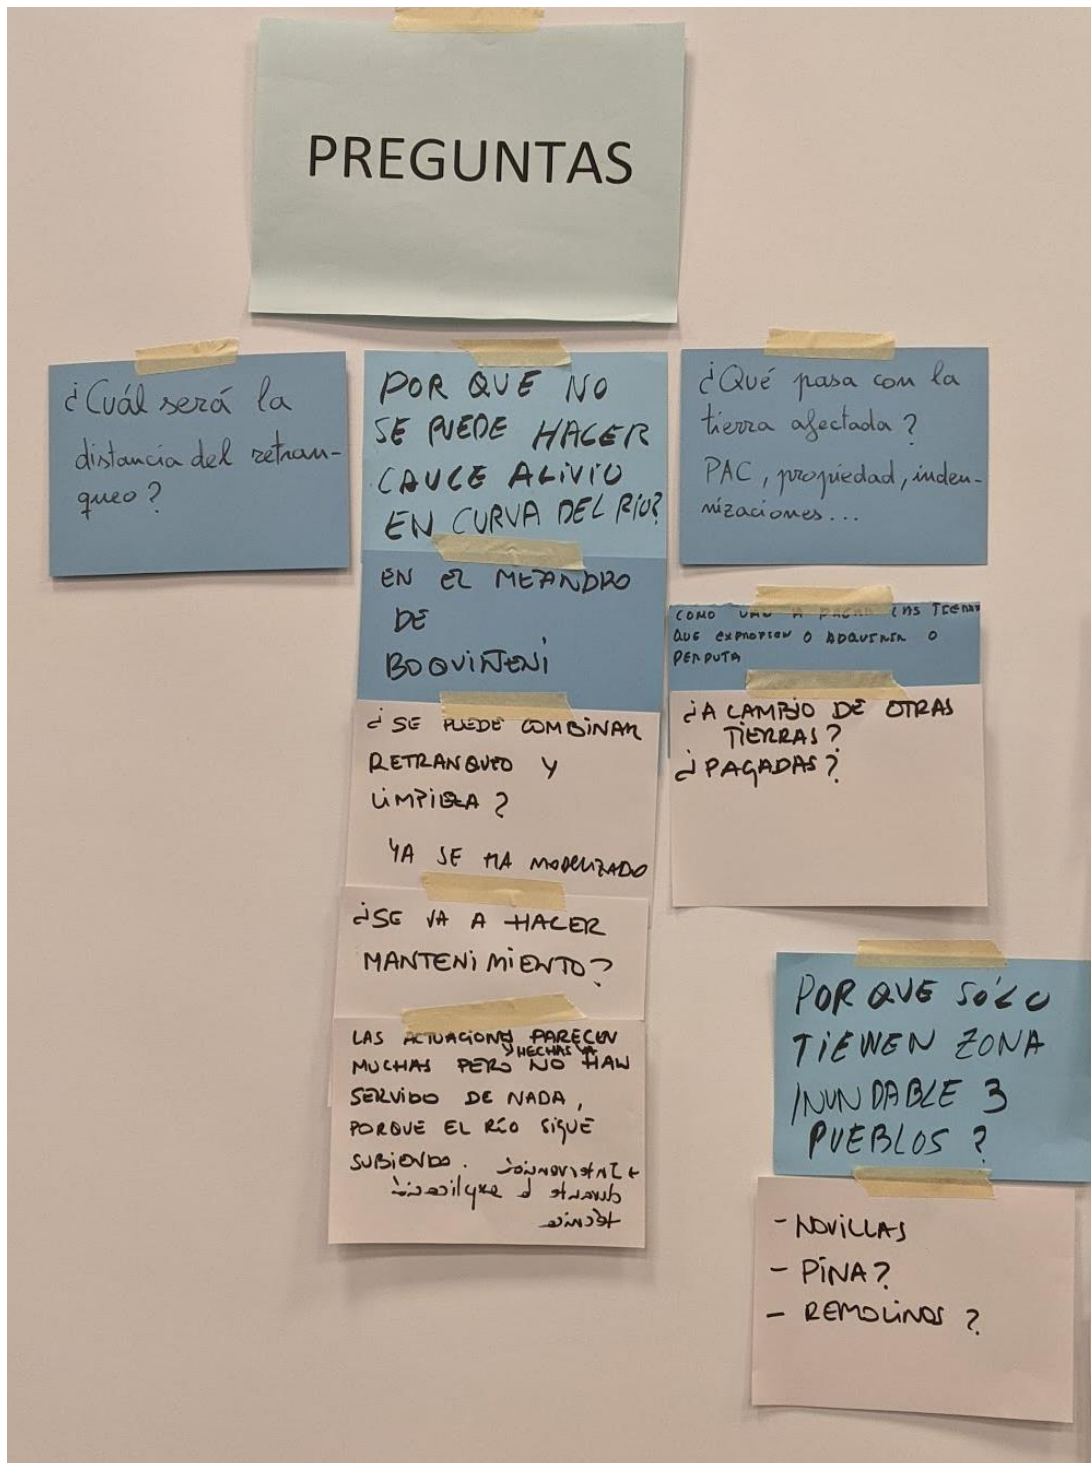 PREGUNTAS
¿Cuál será la
distancia del retran-
queo?
POR QUE NO
SE PUEDE HACER
CAUCE ALIVIO
EN CURVA DEL RIO?
EN EL MEANDRO
DE
BOQUIÑENI
¿SE PUEDE COMBINAR
RETRANQUEO Y
LIMPIEZA?
YA SE HA MODELIZADO
¿SE VA A HACER
MANTENIMIENTO?
LAS ACTUACIONES PARECEN
MUCHAS Y HECHAS YA PERO NO HAN
SERVIDO DE NADA,
PORQUE EL RÍO SIGUE
SUBIENDO.
+ Intervención
durante la explicación
técnica
¿Qué pasa con la
tierra afectada?
PAC, propiedad, indem-
nizaciones...
COMO VAN A PAGAR LAS TIERRAS
QUE EXPROPIEN O ADQUIRIR O
PERMUTA
¿A CAMBIO DE OTRAS
TIERRAS?
¿PAGADAS?
POR QUE SÓLO
TIENEN ZONA
INUNDABLE 3
PUEBLOS?
- NOVILLAS
- PINA?
- REMOLINOS?